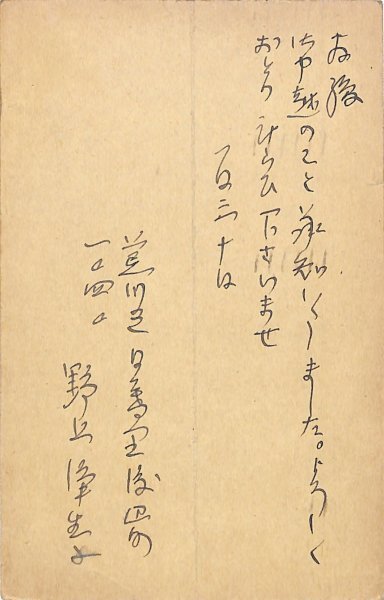 拝復
御申越のこと承知いたしました。よろしく
おとり計らひ下さいませ
一月二十日
荒川区日暮里渡辺町
一〇四〇
野上彌生子